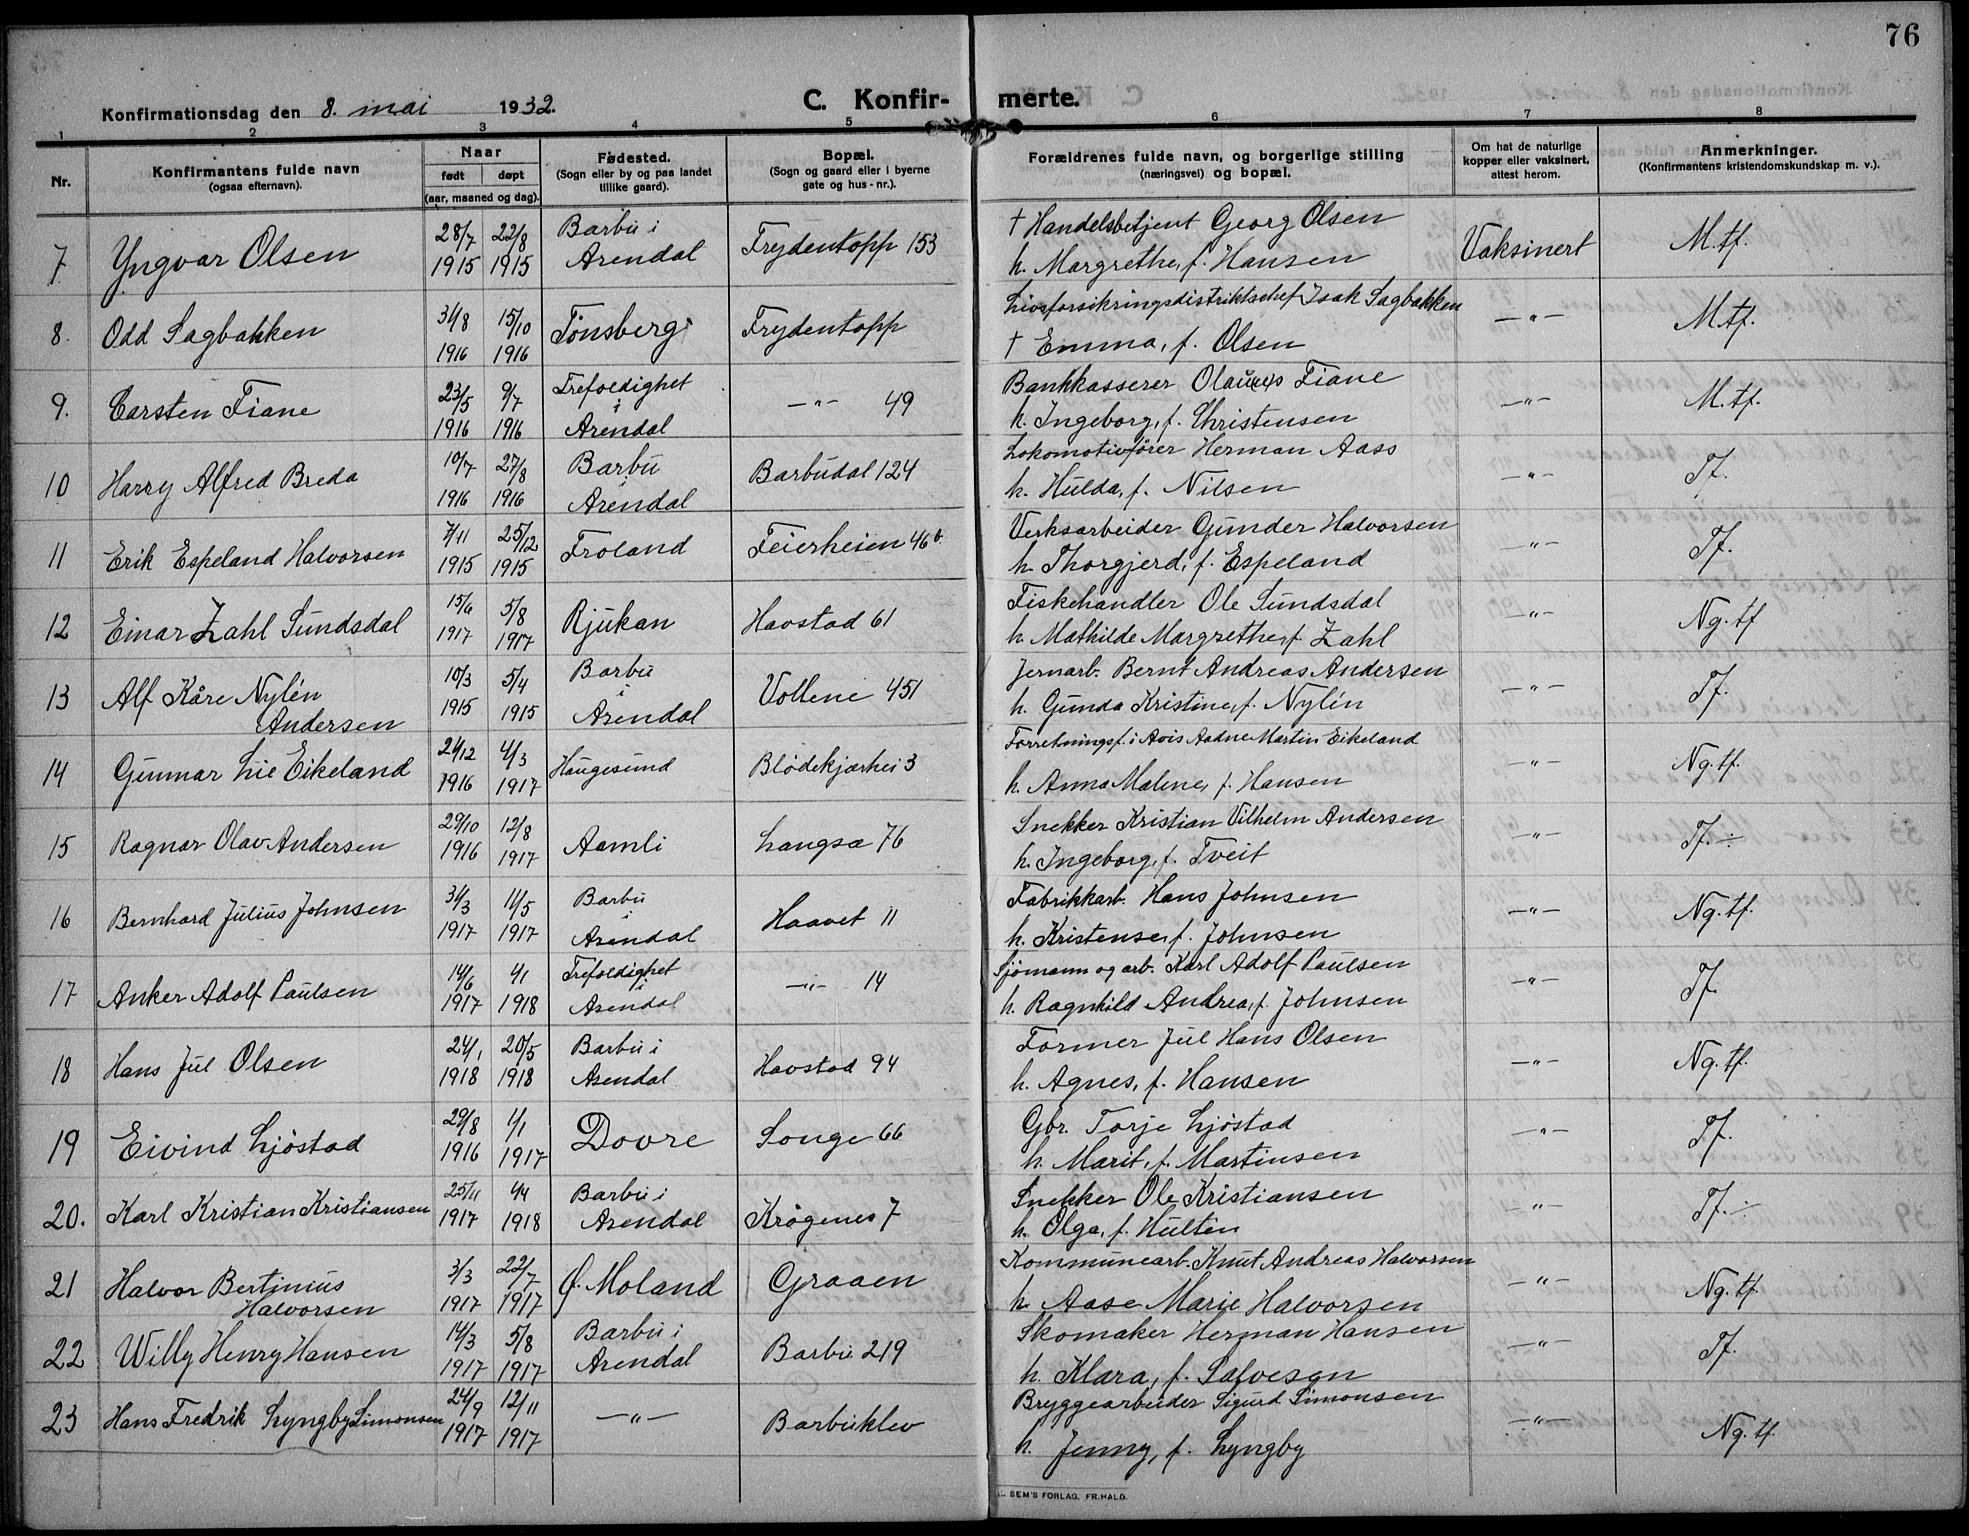 76
Konfirmationsdag den 8. mai 1932.
C. Konfirmerte.
1 2 3 4 5 6 7 8
Nr.
Konfirmantens fulde navn
(ogsaa efternavn).
Naar
født døpt
(aar, maaned og dag).
Fødested.
(Sogn eller by og paa landet
tillike gaard).
Bopæl.
(Sogn og gaard eller i byerne
gate og hus-nr.).
Forældrenes fulde navn, og borgerlige stilling
(næringsvei) og bopæl.
Om hat de naturlige
kopper eller vaksinert,
attest herom.
Anmerkninger.
(Konfirmantens kristendomskundskap m. v.).
7 Yngvar Olsen 28/7 1915 22/8 1915 Barbu i Arendal Frydentopp 153 † Handelsbetjent Georg Olsen Vaksinert M.tf.
h. Margrethe, f. Hansen
8. Odd Sagbakken 31/8 1916 15/10 1916 Tönsberg Frydentopp Livsforsikringsdistriktschef Isak Sagbakken —"— M.tf.
† Emma, f. Olsen
9. Carsten Fiane 23/5 1916 9/7 1916 Trefoldighet i Arendal —"— 49 Bankkasserer Fiane —"— M.tf.
h. Ingeborg, f. Christensen
10 Harry Alfred Breda 10/7 1916 27/8 1916 Barbu i Arendal Barbudal 124 Lokomotivfører Herman Aass —"— Tf.
h. Hulda, f. Nilsen
11 Erik Espeland Halvorsen 7/11 1915 25/12 1915 Froland Feierheien 46b. Verksarbeider Gunder Halvorsen —"— Tf.
h. Thorgjerd, f. Espeland
12 Einar Zahl Sundsdal 15/6 1917 5/8 1917 Rjukan Havstad 61 Fiskehandler Ole Sundsdal —"— Ng.tf
h. Mathilde Margrethe, f. Zahl
13 Alf Kåre Nylén Andersen 10/3 1915 5/4 1915 Barbu i Arendal Vollene 451 Jernarb. Bernt Andreas Andersen —"— Tf.
h. Gunda Kristine, f. Nylén
14 Gunnar Lie Eikeland 21/12 1916 4/3 1917 Haugesund Blödekjærhei 3 Forretningsf. i Avis Aadne Martin Eikeland —"— Ng.tf.
h. Anna Malene, f. Hansen
15 Ragnar Olav Andersen 29/10 1916 12/8 1917 Aamli Langsæ 76 Snekker Kristian Vilhelm Andersen —"— Tf. ÷
h. Ingeborg, f. Tveit
16 Bernhard Julius Johnsen 31/3 1917 11/5 1917 Barbu i Arendal Haavet 11 Fabrikkarb. Hans Johnsen —"— Ng.tf.
h. Kristense, f. Johnsen
17 Anker Adolf Paulsen 14/6 1917 4/1 1918 Trefoldighet i Arendal —"— 14 Sjömann og arb. Karl Adolf Paulsen —"— Tf.
h. Ragnhild Andrea, f. Johnsen
18 Hans Jul Olsen 24/1 1918 20/5 1918 Barbu i Arendal Havstad 94 Former Jul Hans Olsen —"— Ng.tf.
h. Agnes, f. Hansen
19 Eivind Ljöstad 29/8 1916 1/1 1917 Dovre Songe 66 Gbr. Torje Ljöstad —"— Tf.
h. Marit, f. Martinsen
20. Karl Kristian Kristiansen 25/11 1917 1/4 1918 Barbu i Arendal Krögenes 7 Snekker Ole Kristiansen —"— Tf. ÷
h. Olga, f. Hultén
21 Halvor Bertinius Halvorsen 3/3 1917 22/7 1917 Ø. Moland Graaen Kommunearb. Knut Andreas Halvorsen —"— Ng.tf.
h. Aase Marie Halvorsen
22 Willy Henry Hansen 14/3 1917 5/8 1917 Barbu i Arendal Barbu 219 Skomaker Herman Hansen —"— Tf.
h. Klara, f. Salvesen
23 Hans Fredrik Lyngby Simonsen 24/9 1917 12/11 1917 —"— Barbuklev Bryggearbeider Sigurd Simonsen —"— Ng.tf.
h. Jenny, f. Lyngby
SEM'S FORLAG, FR.HALD.